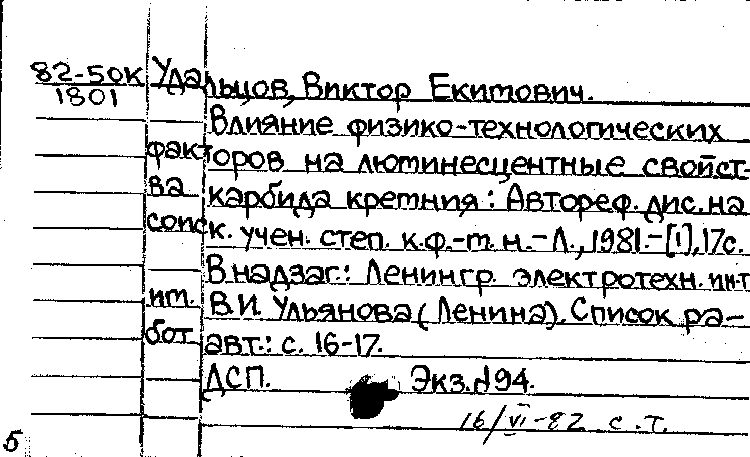 82-50К Удальцов, Виктор Екимович.
1801
Влияние физико-технологических
факторов на люминесцентные свойст-
ва карбида кремния: Автореф. дис. на
соиск. учен. степ. к.ф.-м.н. - Л., 1981. - [1], 17с.
В надзаг.: Ленингр. электротехн. ин-т
им. В.И. Ульянова (Ленина). Список ра-
бот авт.: с. 16-17.
ДСП. Экз. №94.
16/VI-82 с.т.
5